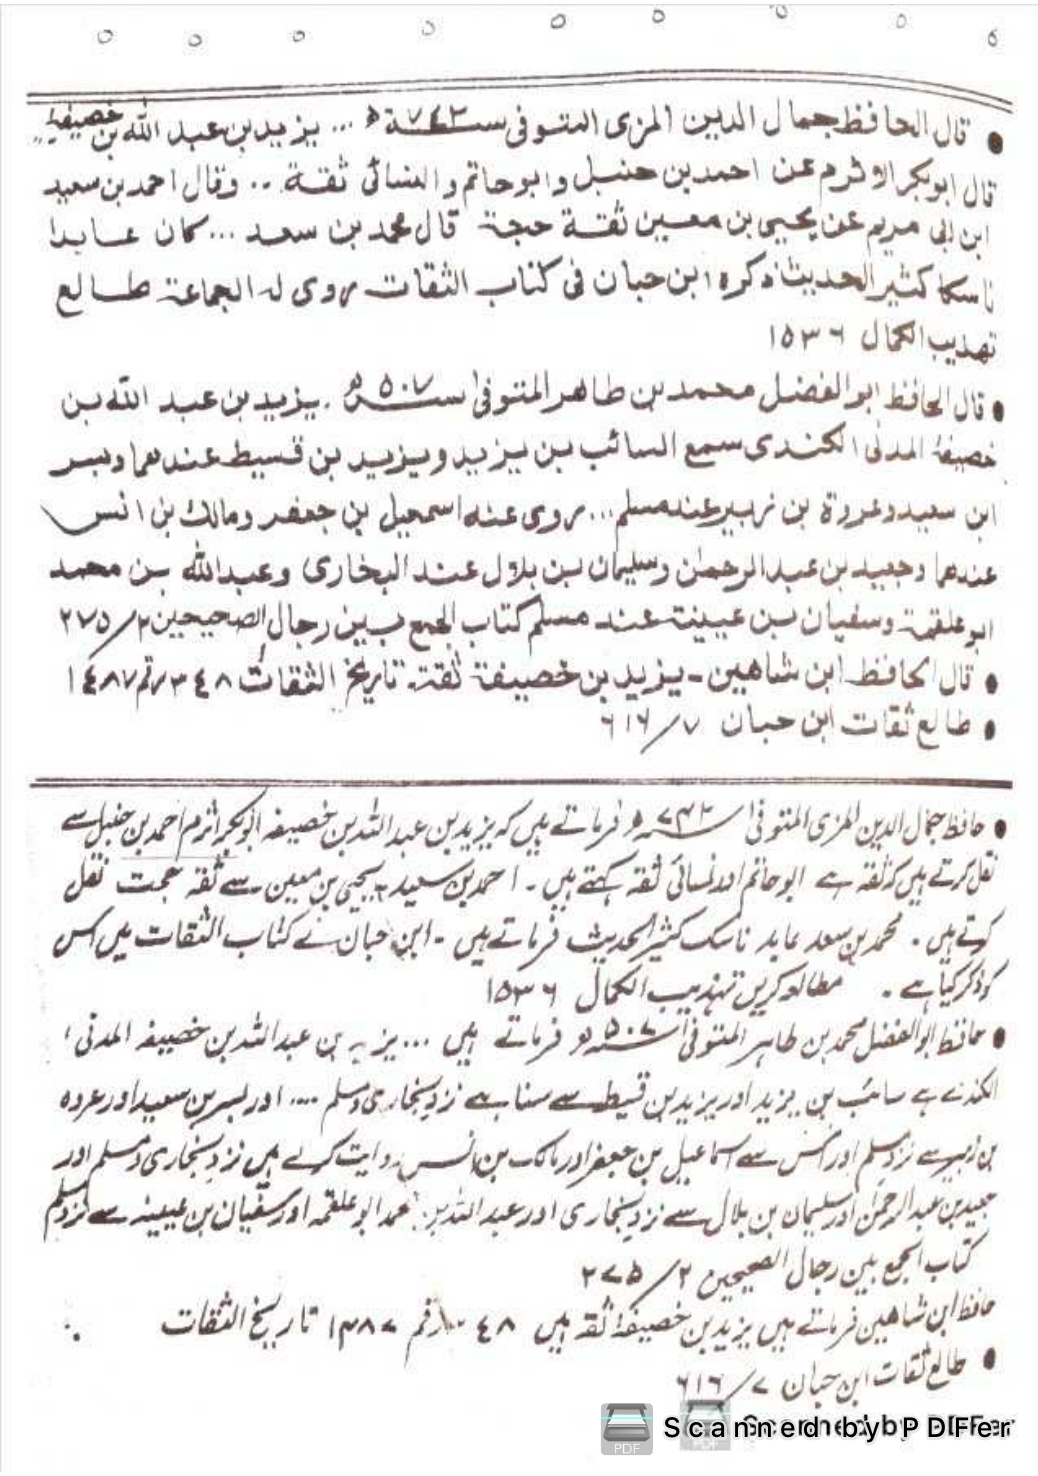 • قال الحافظ جمال الدين المزى المتوفى سنة ٧٤٢ ھ ... يزيد بن عبد الله بن خصيفة
قال ابو بكر الاثرم عن احمد بن حنبل و ابو حاتم و النسائى ثقة .. وقال احمد بن سعيد
ابن ابى مريم عن يحيى بن معين ثقة حجة قال محمد بن سعد ... كان عابدا
ناسكا كثير الحديث ذكره ابن حبان فى كتاب الثقات روى له الجماعة طالع
تهذيب الكمال ١٥٣٦
• قال الحافظ ابو الفضل محمد بن طاهر المتوفى سنة ٥٠٧ ھ . يزيد بن عبد الله بن
خصيفة المدنى الكندى سمع السائب بن يزيد و يزيد بن قسيط عندهما وبسر
ابن سعيد وعروة بن زبير عند مسلم ... روى عنه اسمعيل بن جعفر ومالك بن انس
عندهما وجعيد بن عبد الرحمن وسليمان بن بلال عند البخارى وعبد الله بن محمد
ابو علقمة وسفيان بن عيينة عند مسلم كتاب الجمع بين رجال الصحيحين ٢/٢٧٥
• قال الحافظ ابن شاهين - يزيد بن خصيفة ثقة. تاريخ الثقات ٣٤٨ رقم ١٤٨٧
• طالع ثقات ابن حبان ٧/٦١٦
• حافظ جمال الدين المزى المتوفى سنة ٧٤٢ھ فرماتے ہیں کہ یزید بن عبد اللہ بن خصیفہ ابو بکر اثرم احمد بن حنبل سے
نقل کرتے ہیں کہ ثقہ ہے ابو حاتم اور نسائی ثقہ کہتے ہیں ۔ احمد بن سعید یحیی بن معین سے ثقہ حجت نقل
کرتے ہیں ۔ محمد بن سعد عابد ناسک کثیر الحدیث فرماتے ہیں ۔ ابن حبان نے کتاب الثقات میں اس
کو ذکر کیا ہے ۔ مطالعہ کریں تہذیب الکمال ١٥٣٦
• حافظ ابو الفضل محمد بن طاہر المتوفی سنة ٥٠٧ھ فرماتے ہیں ... یزید بن عبد اللہ بن خصیفہ المدنی
الکندی ہے سائب بن یزید اور یزید بن قسیط سے سنا ہے نزد بخاری و مسلم .... اور بسر بن سعید اور عروہ
بن زبیر سے نزد مسلم اور اس سے اسماعیل بن جعفر اور مالک بن انس روایت کرتے ہیں نزد بخاری و مسلم اور
جعید بن عبد الرحمٰن اور سلیمان بن بلال سے نزد بخاری اور عبد اللہ بن محمد ابو علقمہ اور سفیان بن عیینہ سے نزد مسلم
کتاب الجمع بین رجال الصحیحین ٢/٢٧٥
حافظ ابن شاہین فرماتے ہیں یزید بن خصیفة ثقہ ہیں ٣٤٨ رقم ١٤٨٧ تاریخ الثقات
• طالع ثقات ابن حبان ٧/٦١٦
Scanned by PDFer